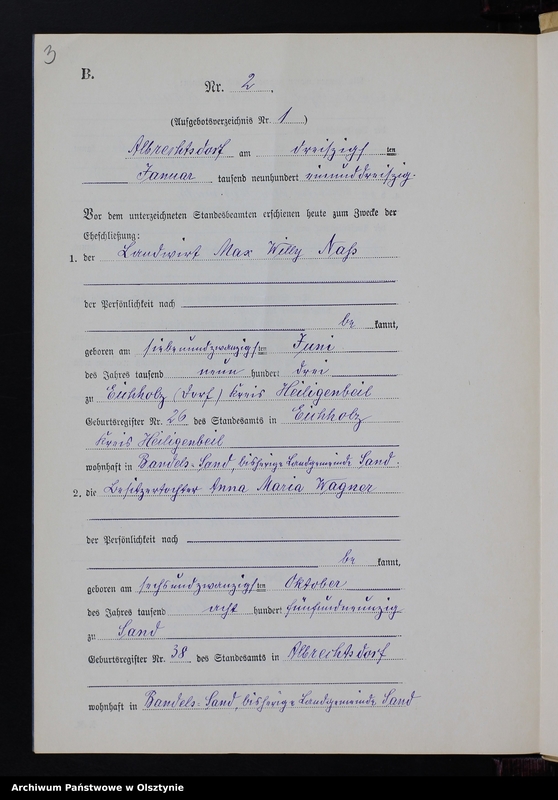 3
B.
Nr. 2.
(Aufgebotsverzeichnis Nr. 1)
Albrechtsdorf am dreißigsten
Januar tausend neunhundert einunddreißig.
Vor dem unterzeichneten Standesbeamten erschienen heute zum Zwecke der
Eheschließung:
1. der Landwirt Max Willy Naß
der Persönlichkeit nach
be kannt,
geboren am siebenundzwanzigsten Juni
des Jahres tausend neun hundert drei
zu Eichholz (Dorf) Kreis Heiligenbeil
Geburtsregister Nr. 26 des Standesamts in Eichholz
Kreis Heiligenbeil
wohnhaft in Bandels-Sand, bisherige Landgemeinde Sand.
2. die Besitzertochter Anna Maria Wagner
der Persönlichkeit nach
be kannt,
geboren am sechsundzwanzigsten Oktober
des Jahres tausend acht hundert fünfundneunzig
zu Sand
Geburtsregister Nr. 38 des Standesamts in Albrechtsdorf
wohnhaft in Bandels-Sand, bisherige Landgemeinde Sand
Archiwum Państwowe w Olsztynie